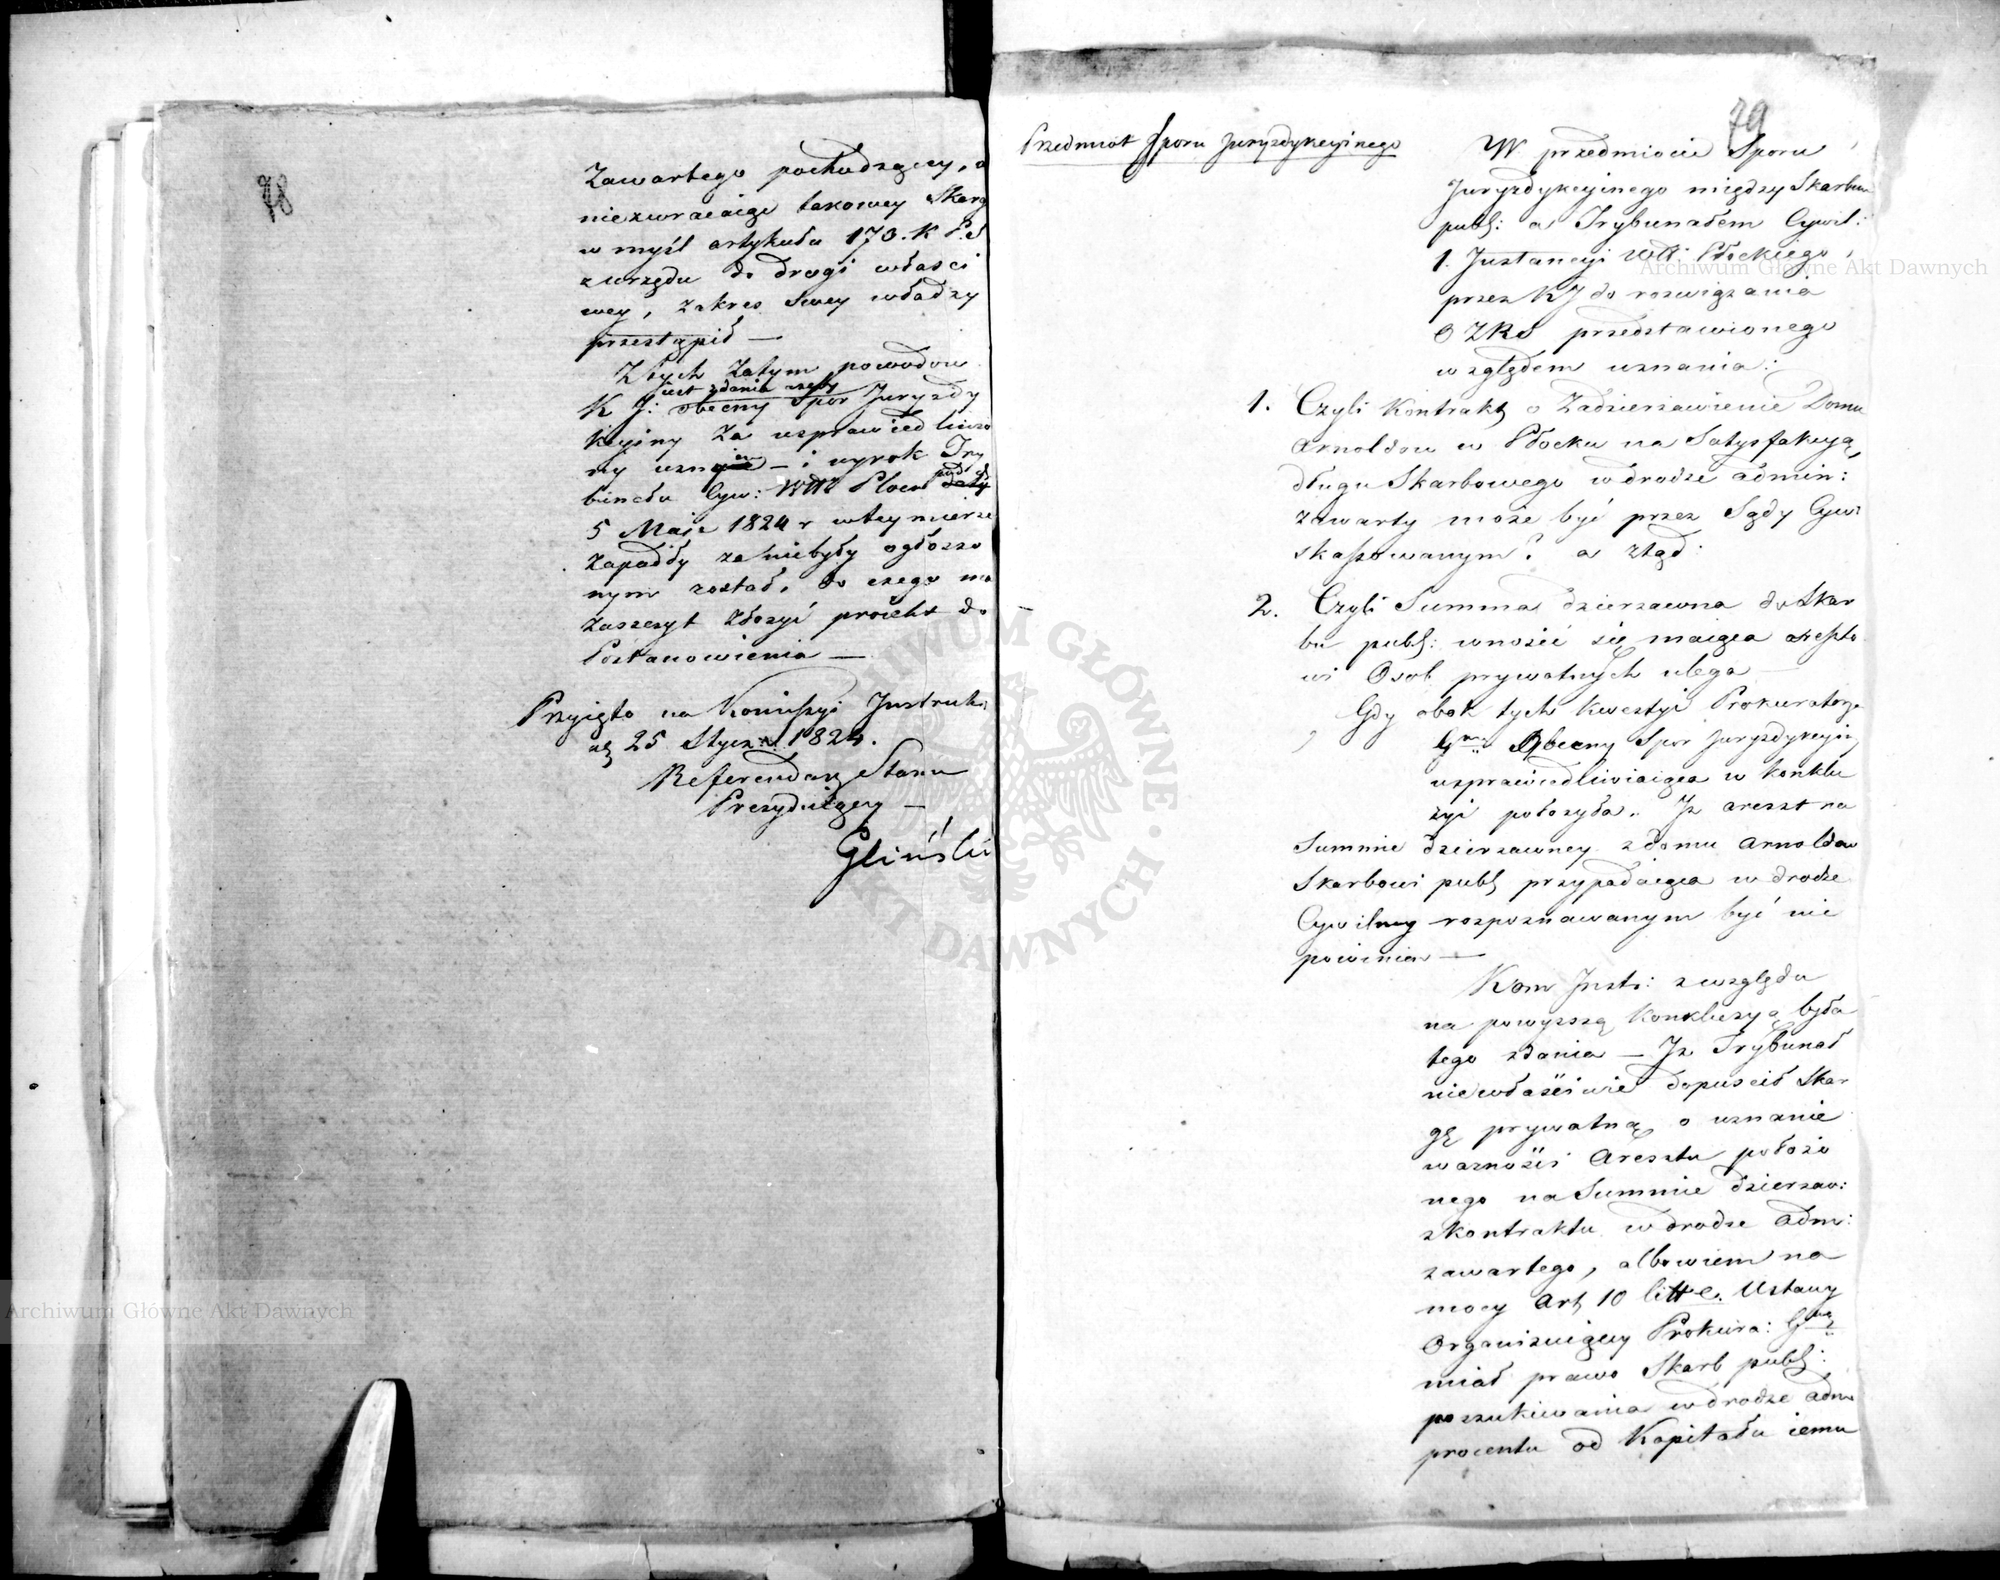 78
Zawartego pochodzącey, a
niezwracaiąc takowey Skarg
w myśl artykułu 170. K P. S
z urzędu do drogi własci
wey, zakres Swey władzy
przestąpił —
Z tych zatym powodow
iest zdania ażeby
K J: obecny Spor Juryzdy
kcyiny za usprawiedliwio
ny uznan — i wyrok Try
bunału Cyw: Wttwa Płock pod d
5 Maja 1824 r w tey mierze
zapadły za niebyły ogłoszo
nym został, do czego ma
zaszczyt złożyć proiekt do
Postanowienia —
Przyięto na Kommissyi Instruk:
25 Stycz. 1824.
Referendarz Stanu
Prezyduiący —
Gliński
79
Przedmiot Sporu Juryzdykcyinego
W przedmiocie Sporu
Juryzdykcyinego między Skarbem
publ: a Trybunałem Cywil:
1. Instancyi Wtt: Płockiego,
przez KJ do rozwiązania
O ZRS przedstawionego
względem uznania:
1. Czyli Kontrakt o Zadzierżawienie Domu
Arnoldow w Płocku na Satysfakcyą
długu Skarbowego w drodze admin:
zawarty może być przez Sądy Cyw:
skassowanym? a ztąd:
2. Czyli Summa dzierżawna do Skar
bu publ: wnosić się maiąca aresto
wi Osob prywatnych ulega —
Gdy obok tych kwestyi Prokuratorya
Gna Obecny Spor Juryzdykcyiny
usprawiedliwiaiąca w konklu
zyi położyła „ Iż areszt na
Summie dzierżawney z domu Arnoldow
Skarbowi publ przypadaiąca w drodze
Cywilney rozpoznawanym być nie
powinien —
Kom Instr: z względu
na powyższą Konkluzyą była
tego zdania — Iż Trybunał
niewłaściwie dopuscił Skar
gę prywatną o uznanie
ważności Aresztu położo
nego na Summie dzierżaw:
z kontraktu w drodze adm:
zawartego, albowiem na
mocy Art 10 litt e. Ustawy
Organizuiącey Prokura: Gną
miał prawo Skarb publ:
poszukiwania w drodze adm
procentu od Kapitału iemu